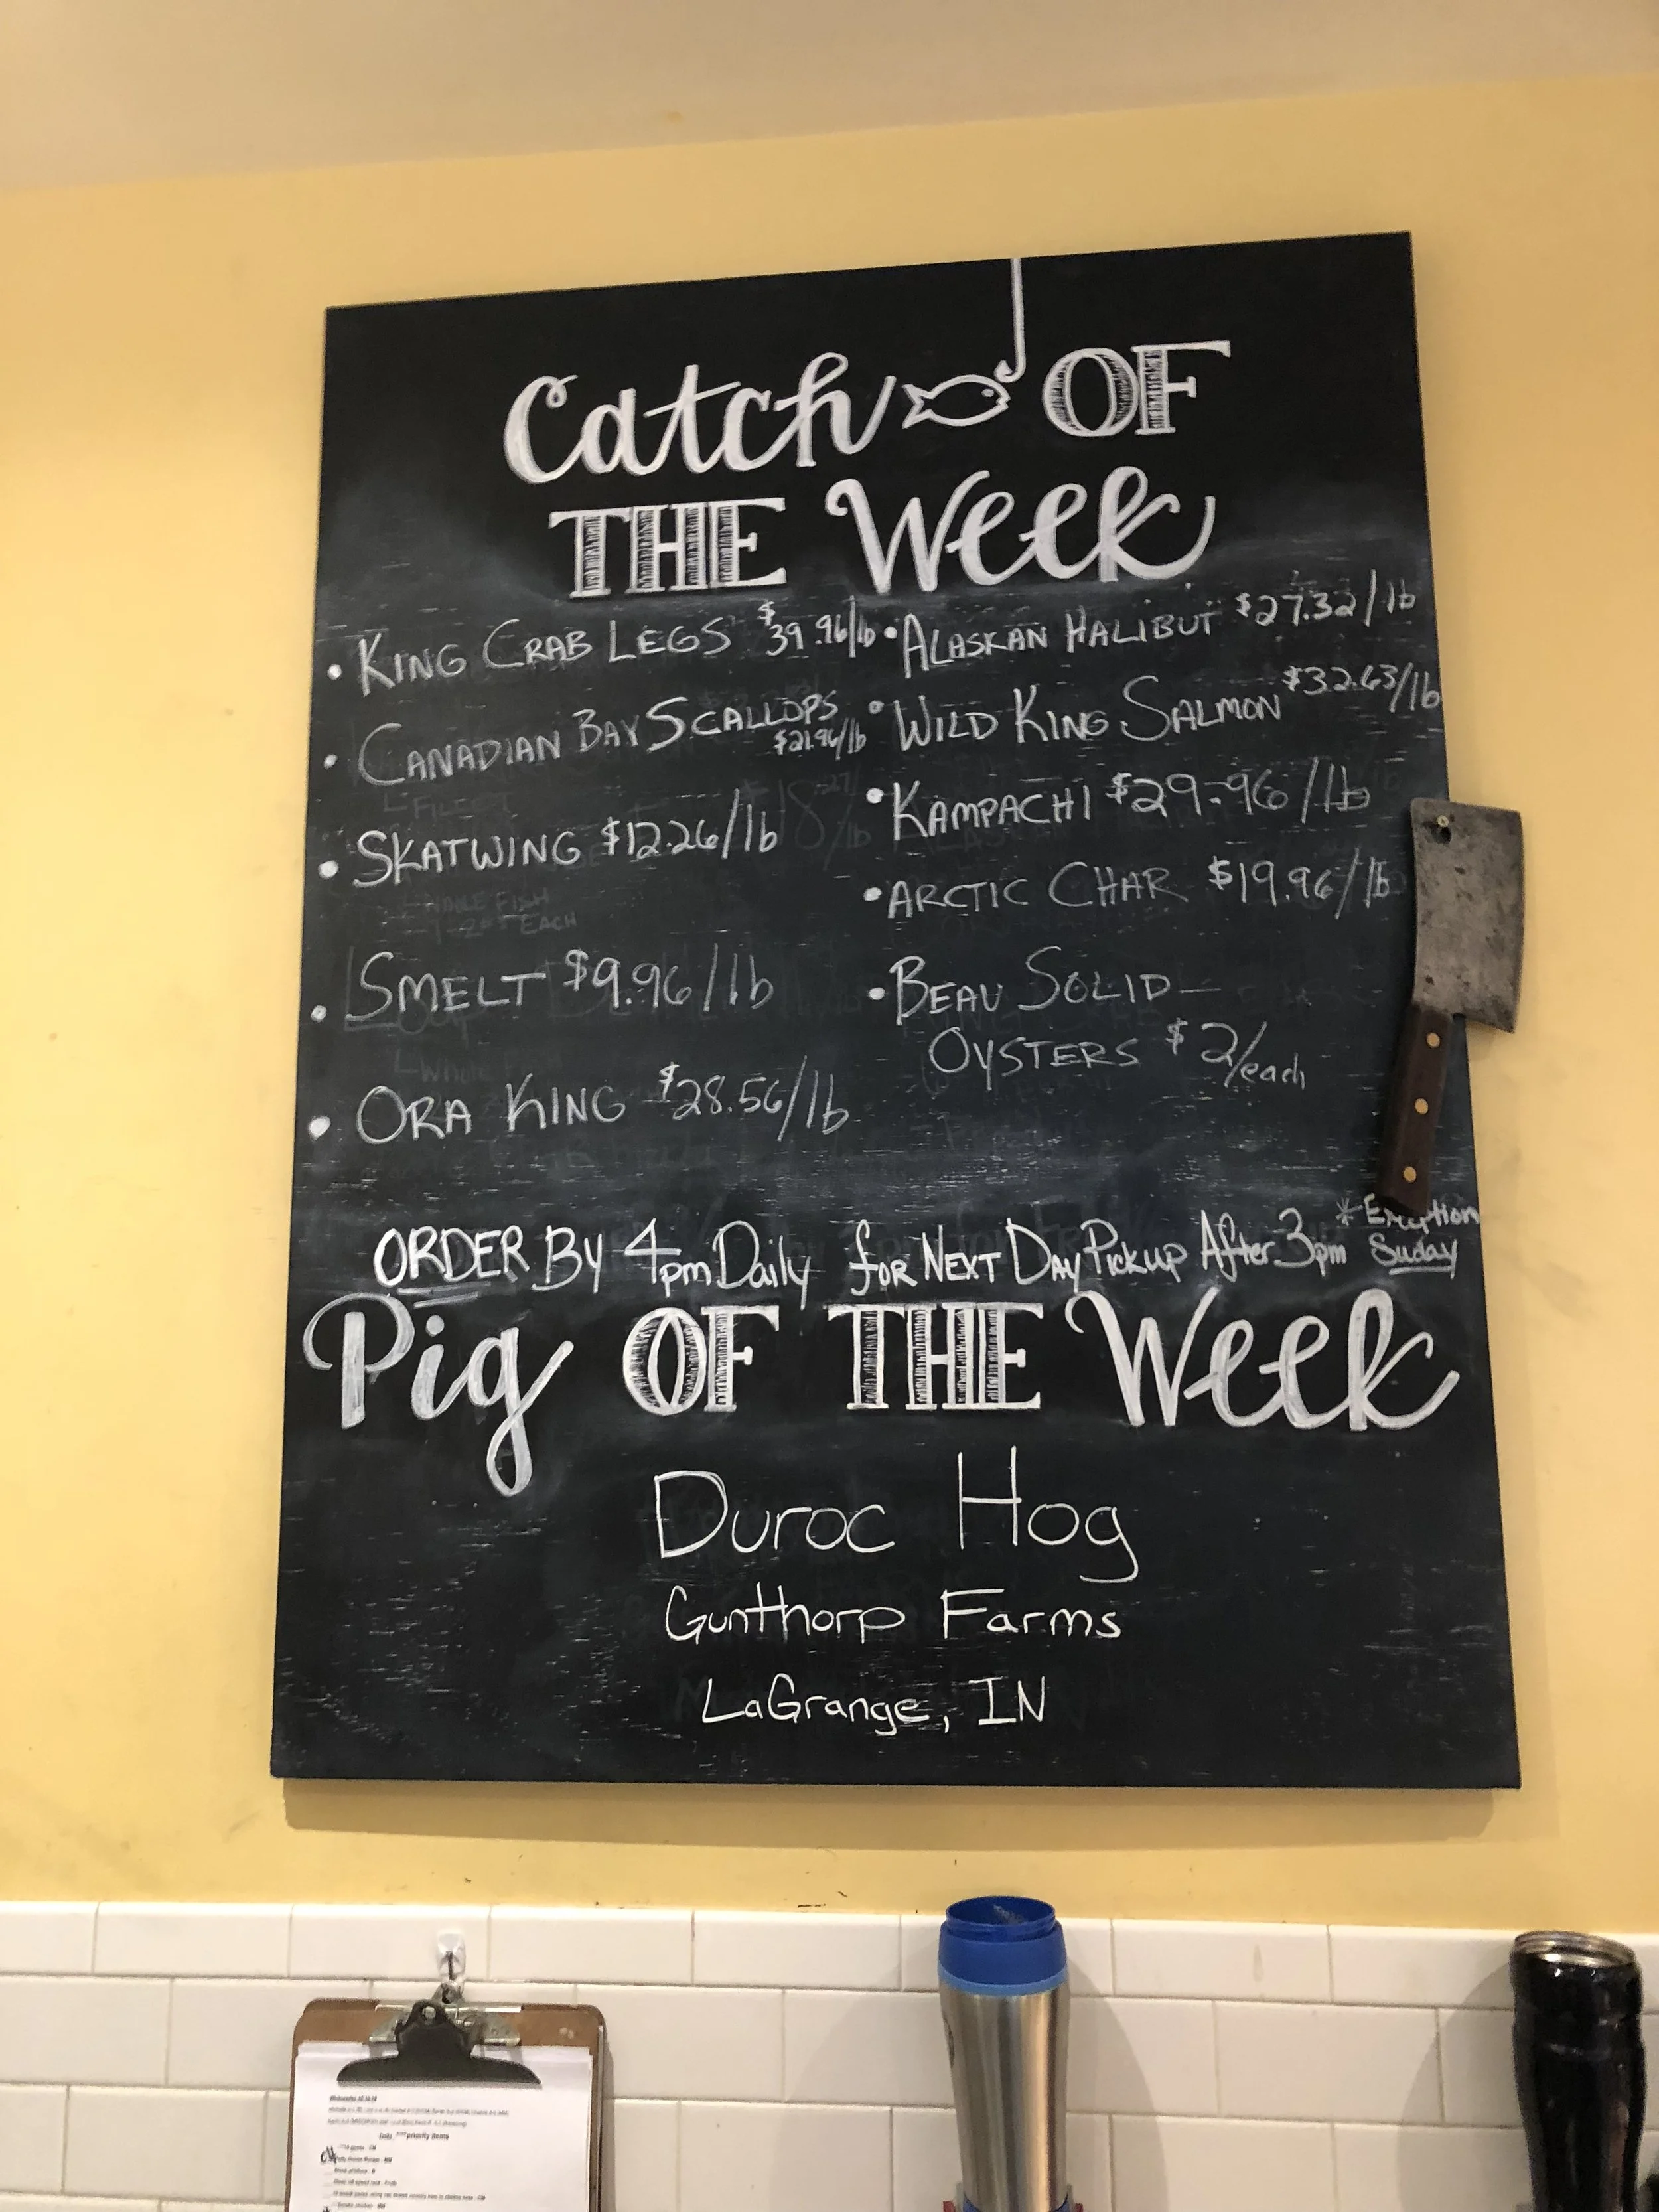 Catch OF
THE Week
• KING CRAB LEGS $39.96/lb
• CANADIAN BAY SCALLOPS
$21.96/lb
• SKATWING $12.26/lb
• SMELT $9.96/lb
• ORA KING $28.56/lb
• ALASKAN HALIBUT $27.32/lb
• WILD KING SALMON $32.63/lb
• KAMPACHI $29.96/lb
• ARCTIC CHAR $19.96/lb
• BEAU SOLID-
OYSTERS $2/each
ORDER By 4pm Daily for NEXT DAY Pickup After 3pm * Exception Suday
Pig OF THE Week
Duroc Hog
Gunthorp Farms
LaGrange, IN
priority items